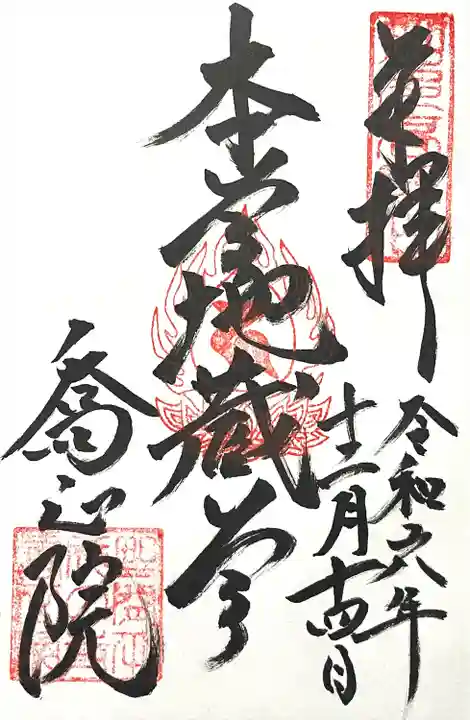 奉拝
令和六年
十二月十四日
本尊地蔵尊
喬正院